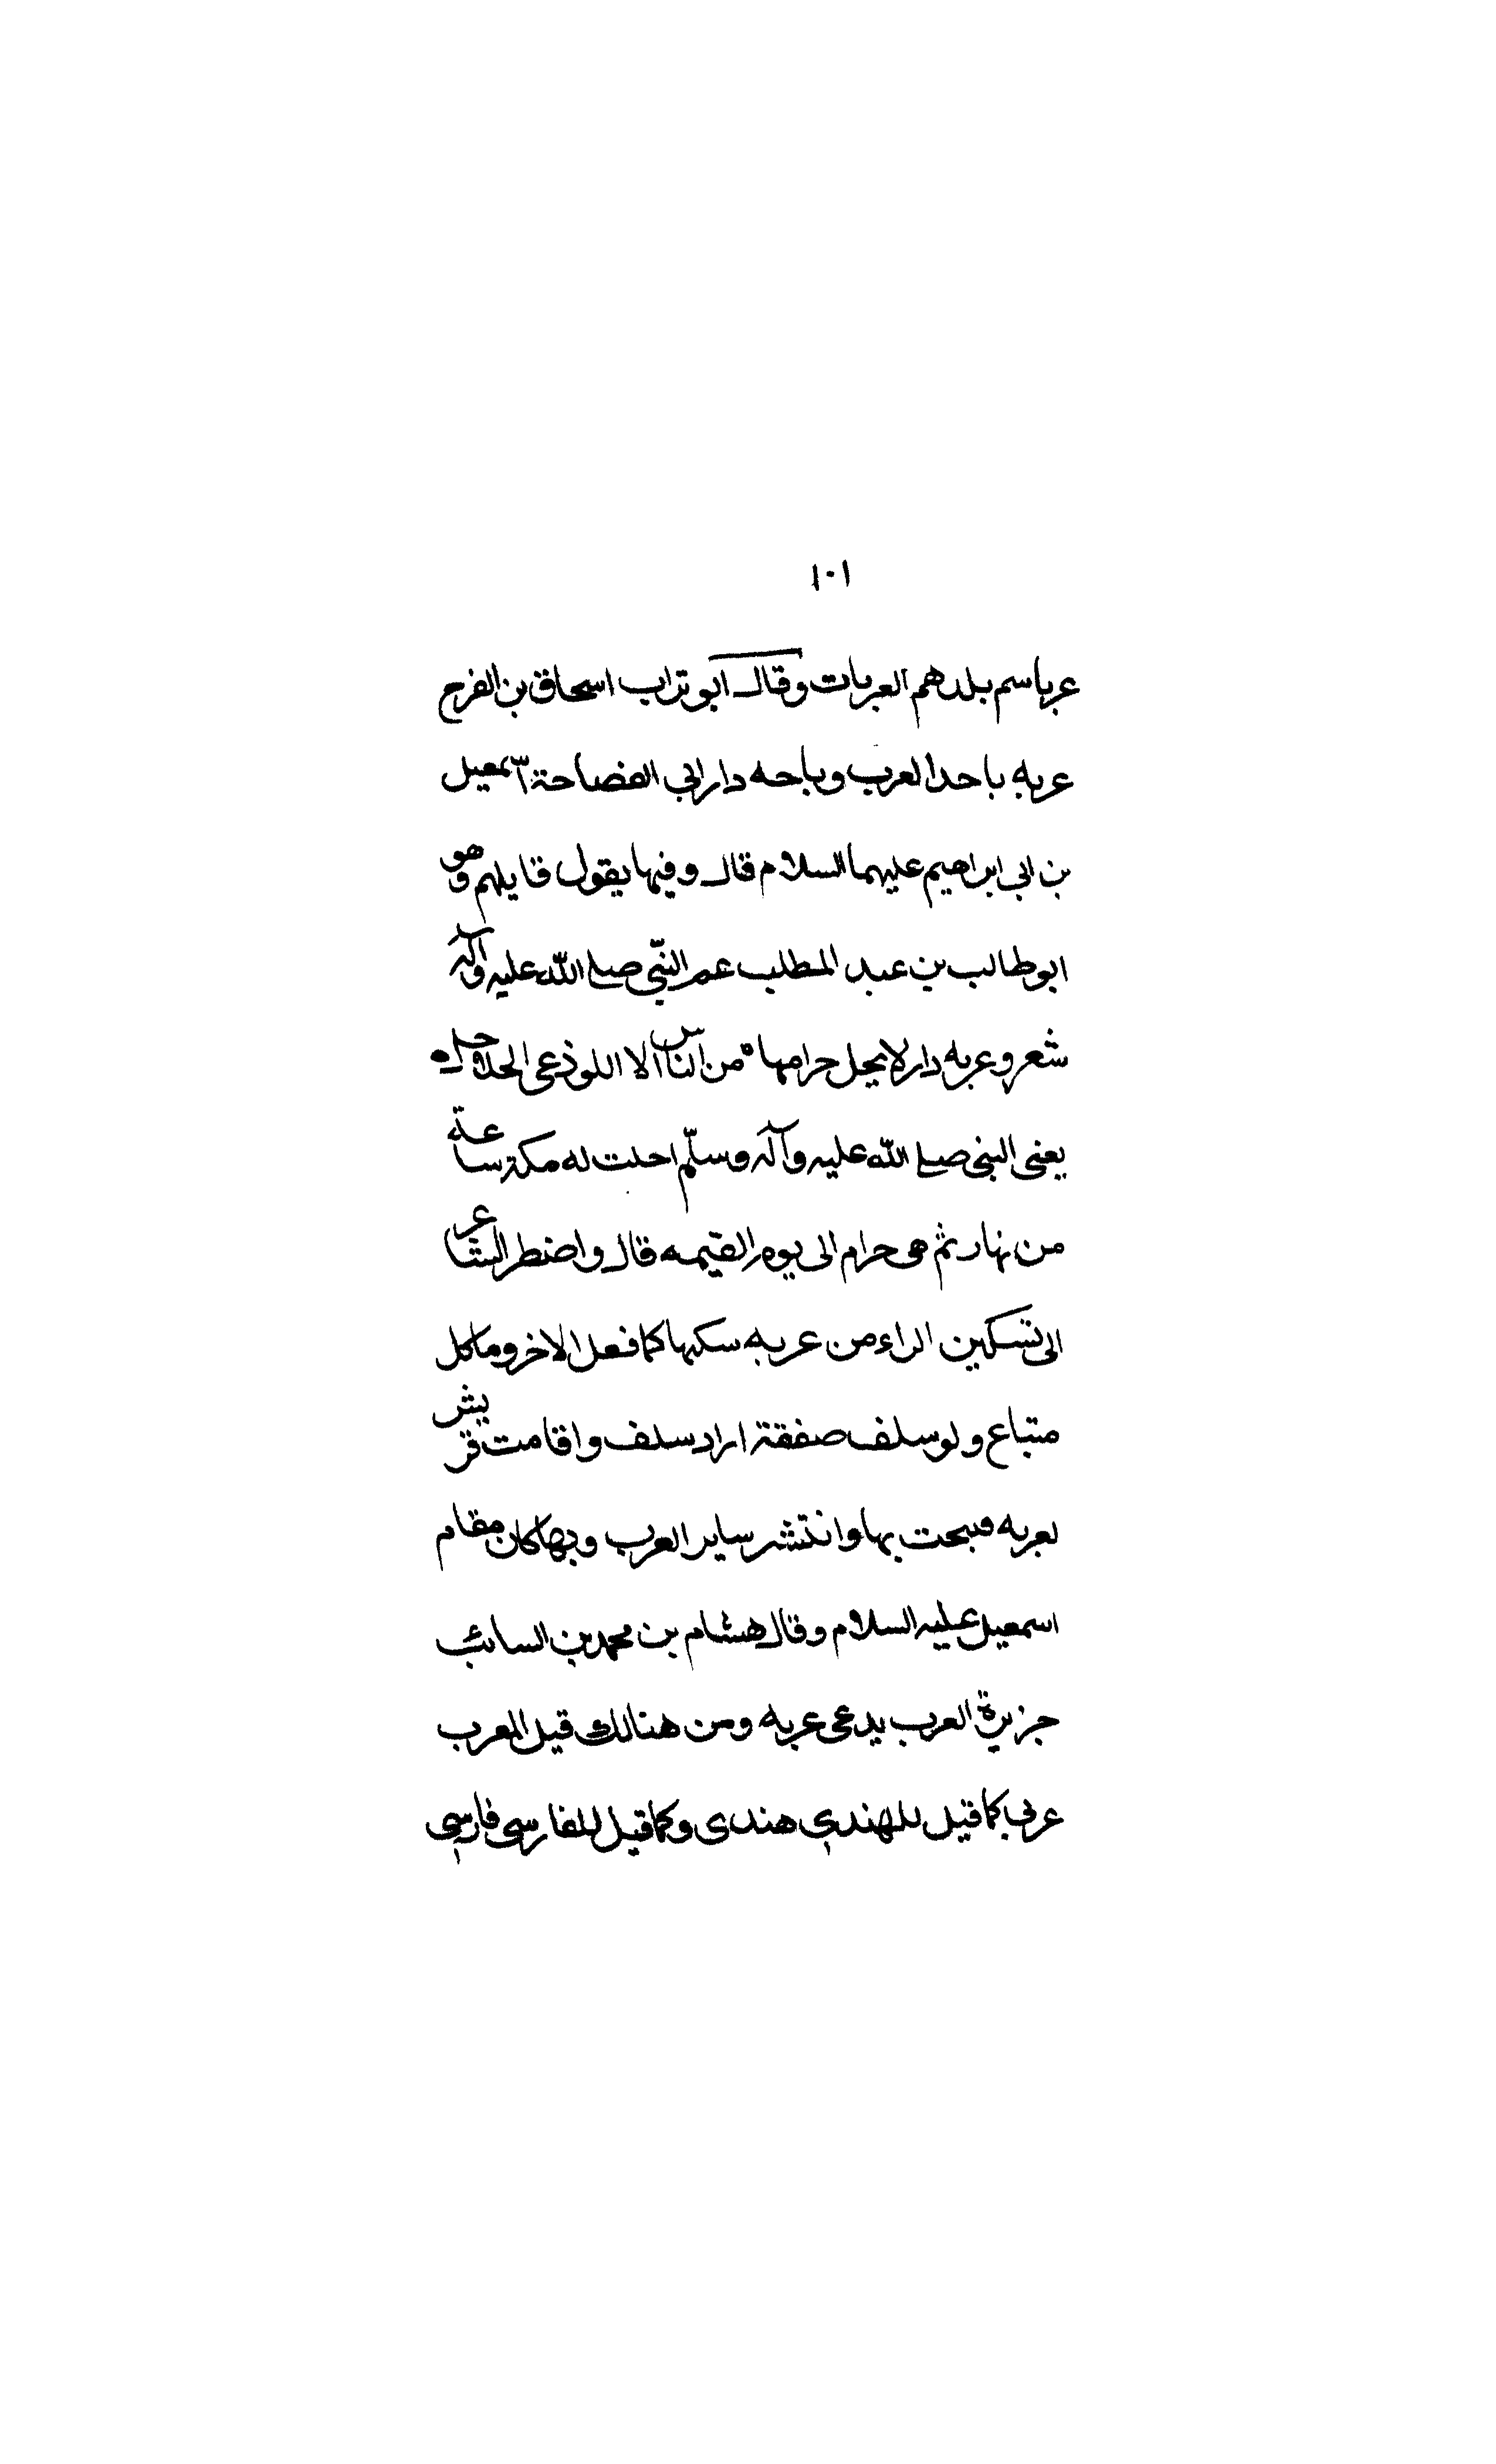 ١٠١
عربا سم بلدهم العربات وقال ابو تراب اسحاق بن الفرج
عربه باحدا لعرب وباحه دار ابى الفصاحة اسمعيل
بن ابى ابراهيم عليهما السلام قال وفيها يقول قايلهم وهو
ابو طالب بن عبد المطلب عم النبّى صلى اللّه عليه وآله
شعر وعربه دار لا يحل حرامها ° من الناس الا اللوذعى الحلاحل •
يعنى النبى صلى اللّه عليه وآله وسلّم احلت له مكة ساعة
من نهار ثم هى حرام الى يوم القيمه قال واضطر الشاعر
الى تسكين الراء من عربه سكنها كما فعل الاخر وما كل
متباع ولو سلف صفقة اراد سلف واقامت قريش
بعربه فبحت بها وانتشر ساير العرب وبها كان مقام
اسمعيل عليه السلام وقال هشام بن محمد بن السائب
جزيرة العرب يدعى عربه ومن هنالك قيل للعرب
عربى كما قيل للهندى هندى وكما قيل للفارسى فارسى